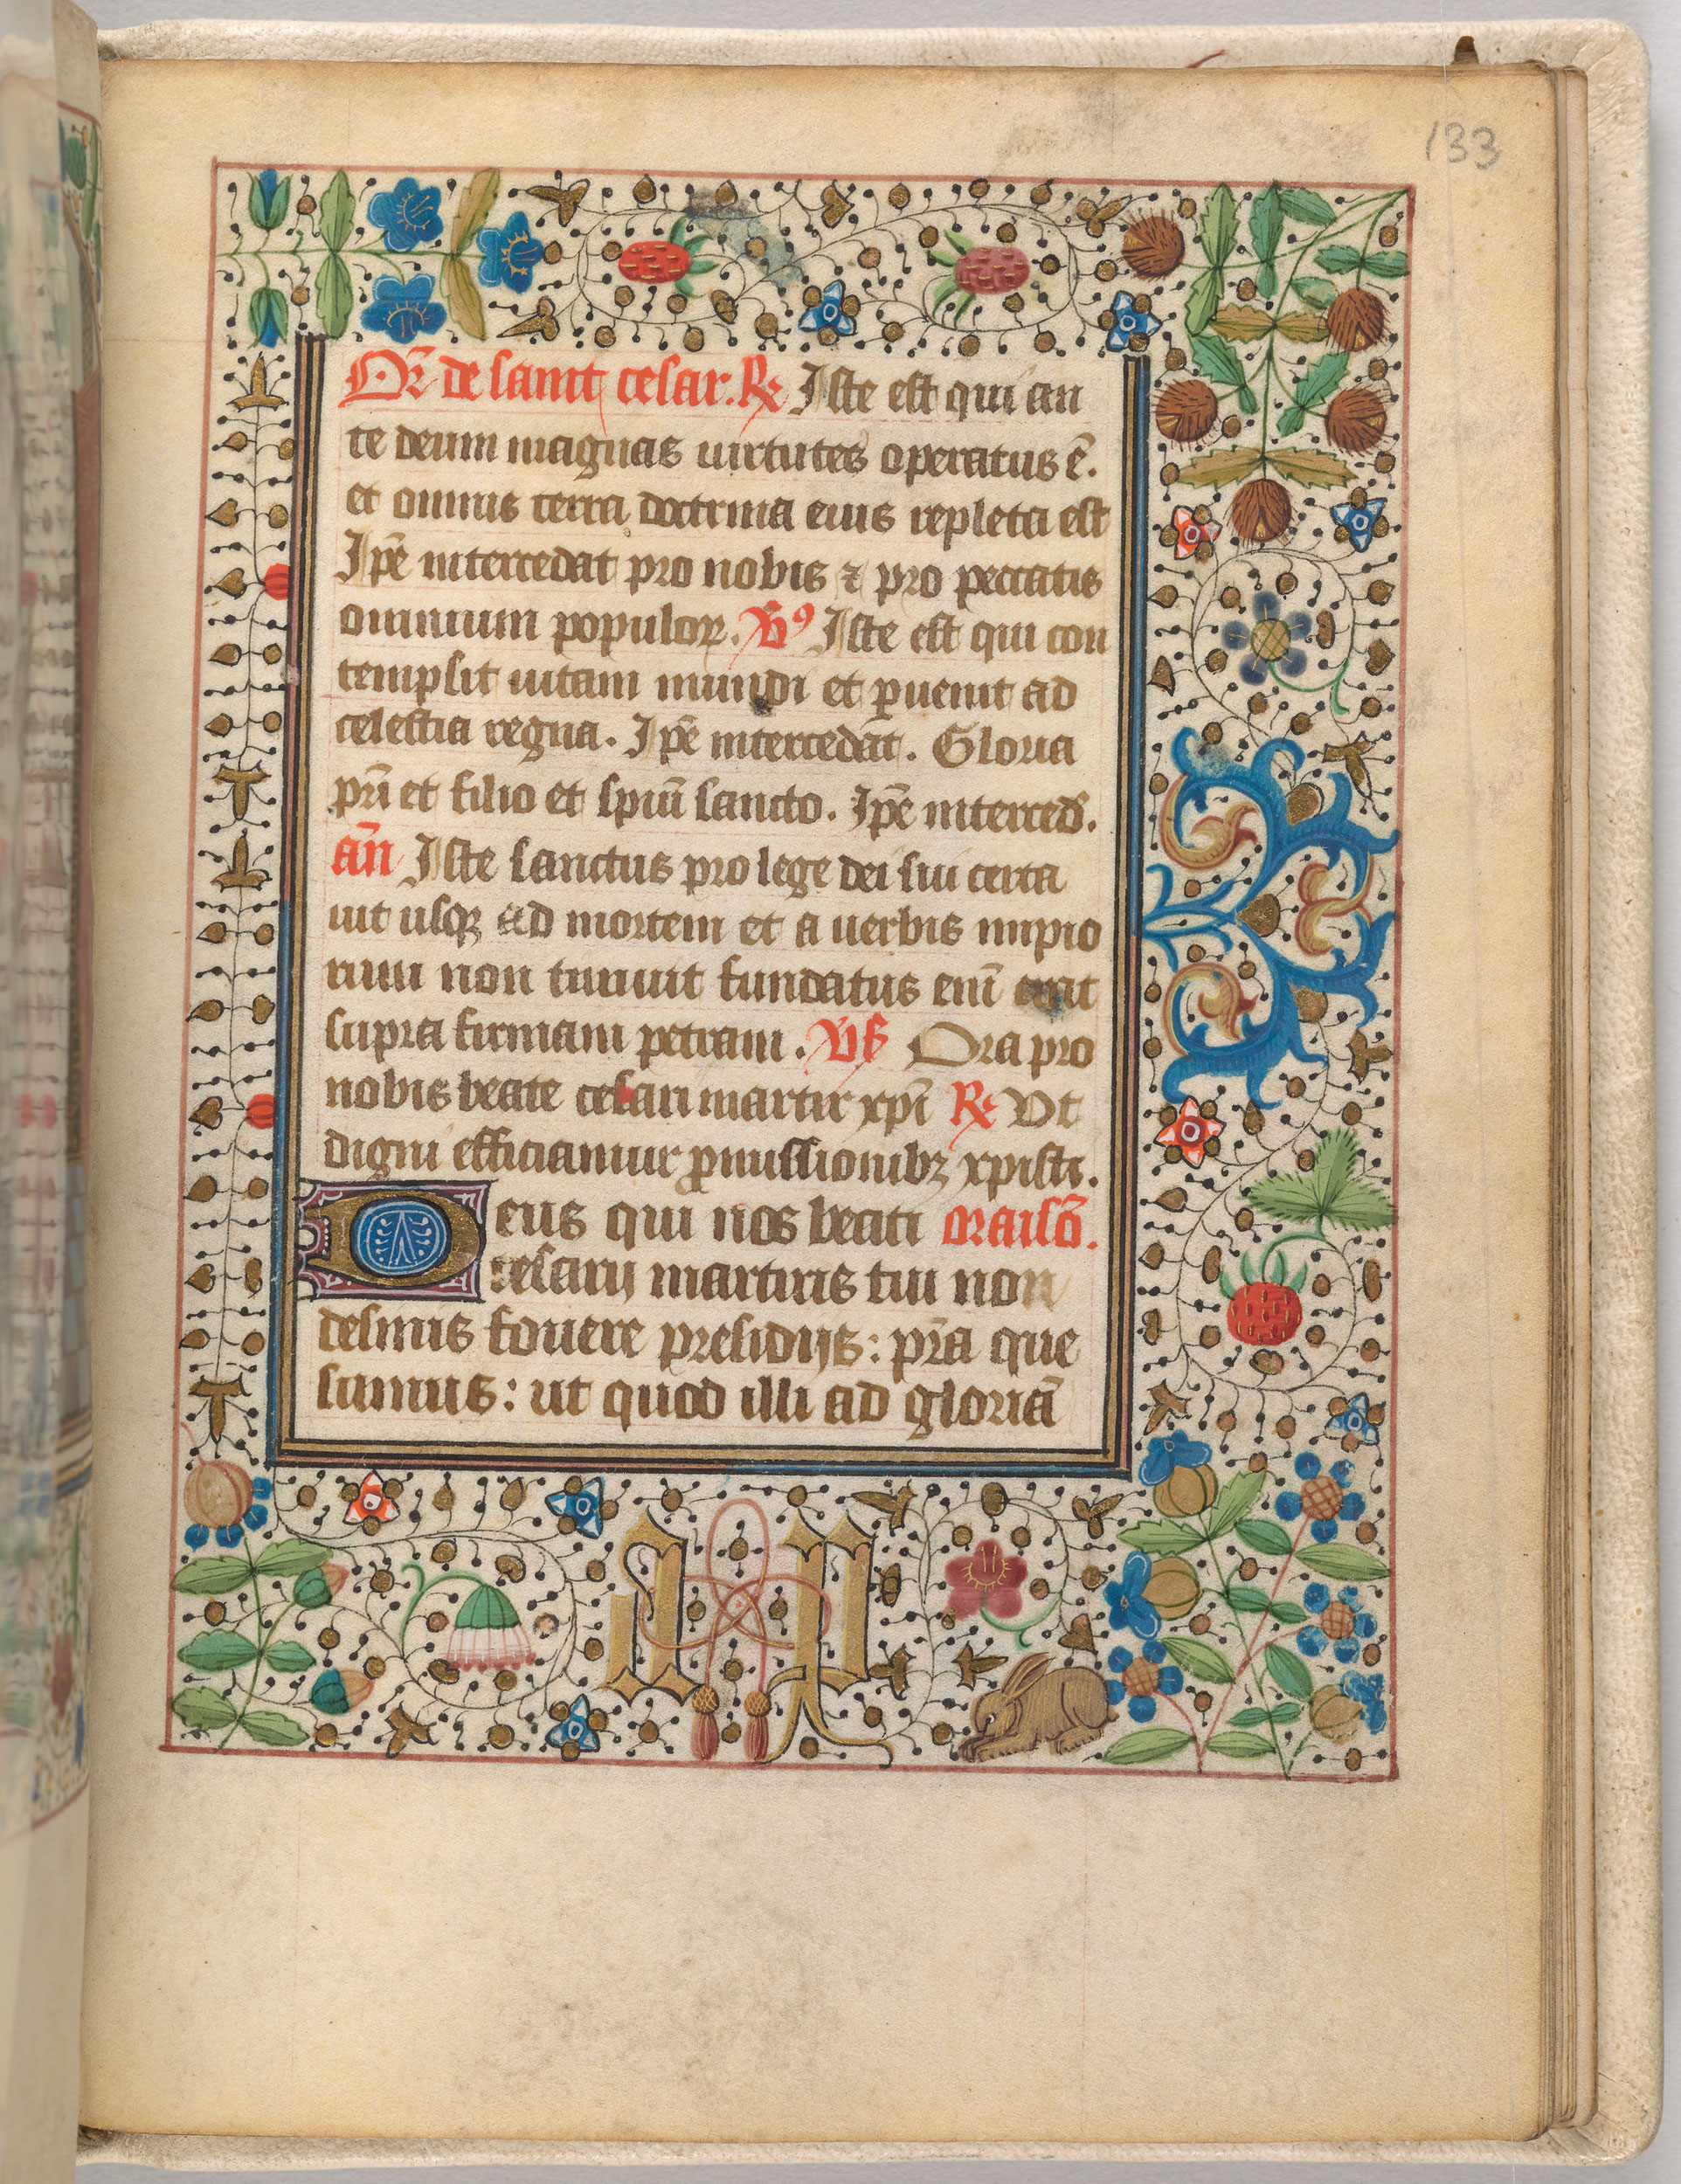 133
Or̄ de saint cesar. R̃ Iste est qui an
te deum magnas uirtutes operatus ē.
et omnis terra doctrina eius repleta est
Ip̄e intercedat pro nobis ⁊ pro peccatis
omnium populoꝝ. V̄ꝰ Iste est qui con
tempsit uitam mundi et ꝑuenit ad
celestia regna. Ip̄e intercedāt. Gloria
pr̄i et filio et spiū sancto. Ip̄e interced̄.
an̄ Iste sanctus pro lege dei sui certa
uit usqꝫ ad mortem et a uerbis impio
rum non timuit fundatus eni̅ erat
supra firmam petram. Vs̄ Ora pro
nobis beate cesari martir xp̄i R̃ Vt
digni efficiamur ꝓmissionibꝫ xpisti.
Deus qui nos beati oraisō.
cesarij martiris tui non
desinis fouere presidijs: pr̄a que
sumus: ut quod illi ad gloriā